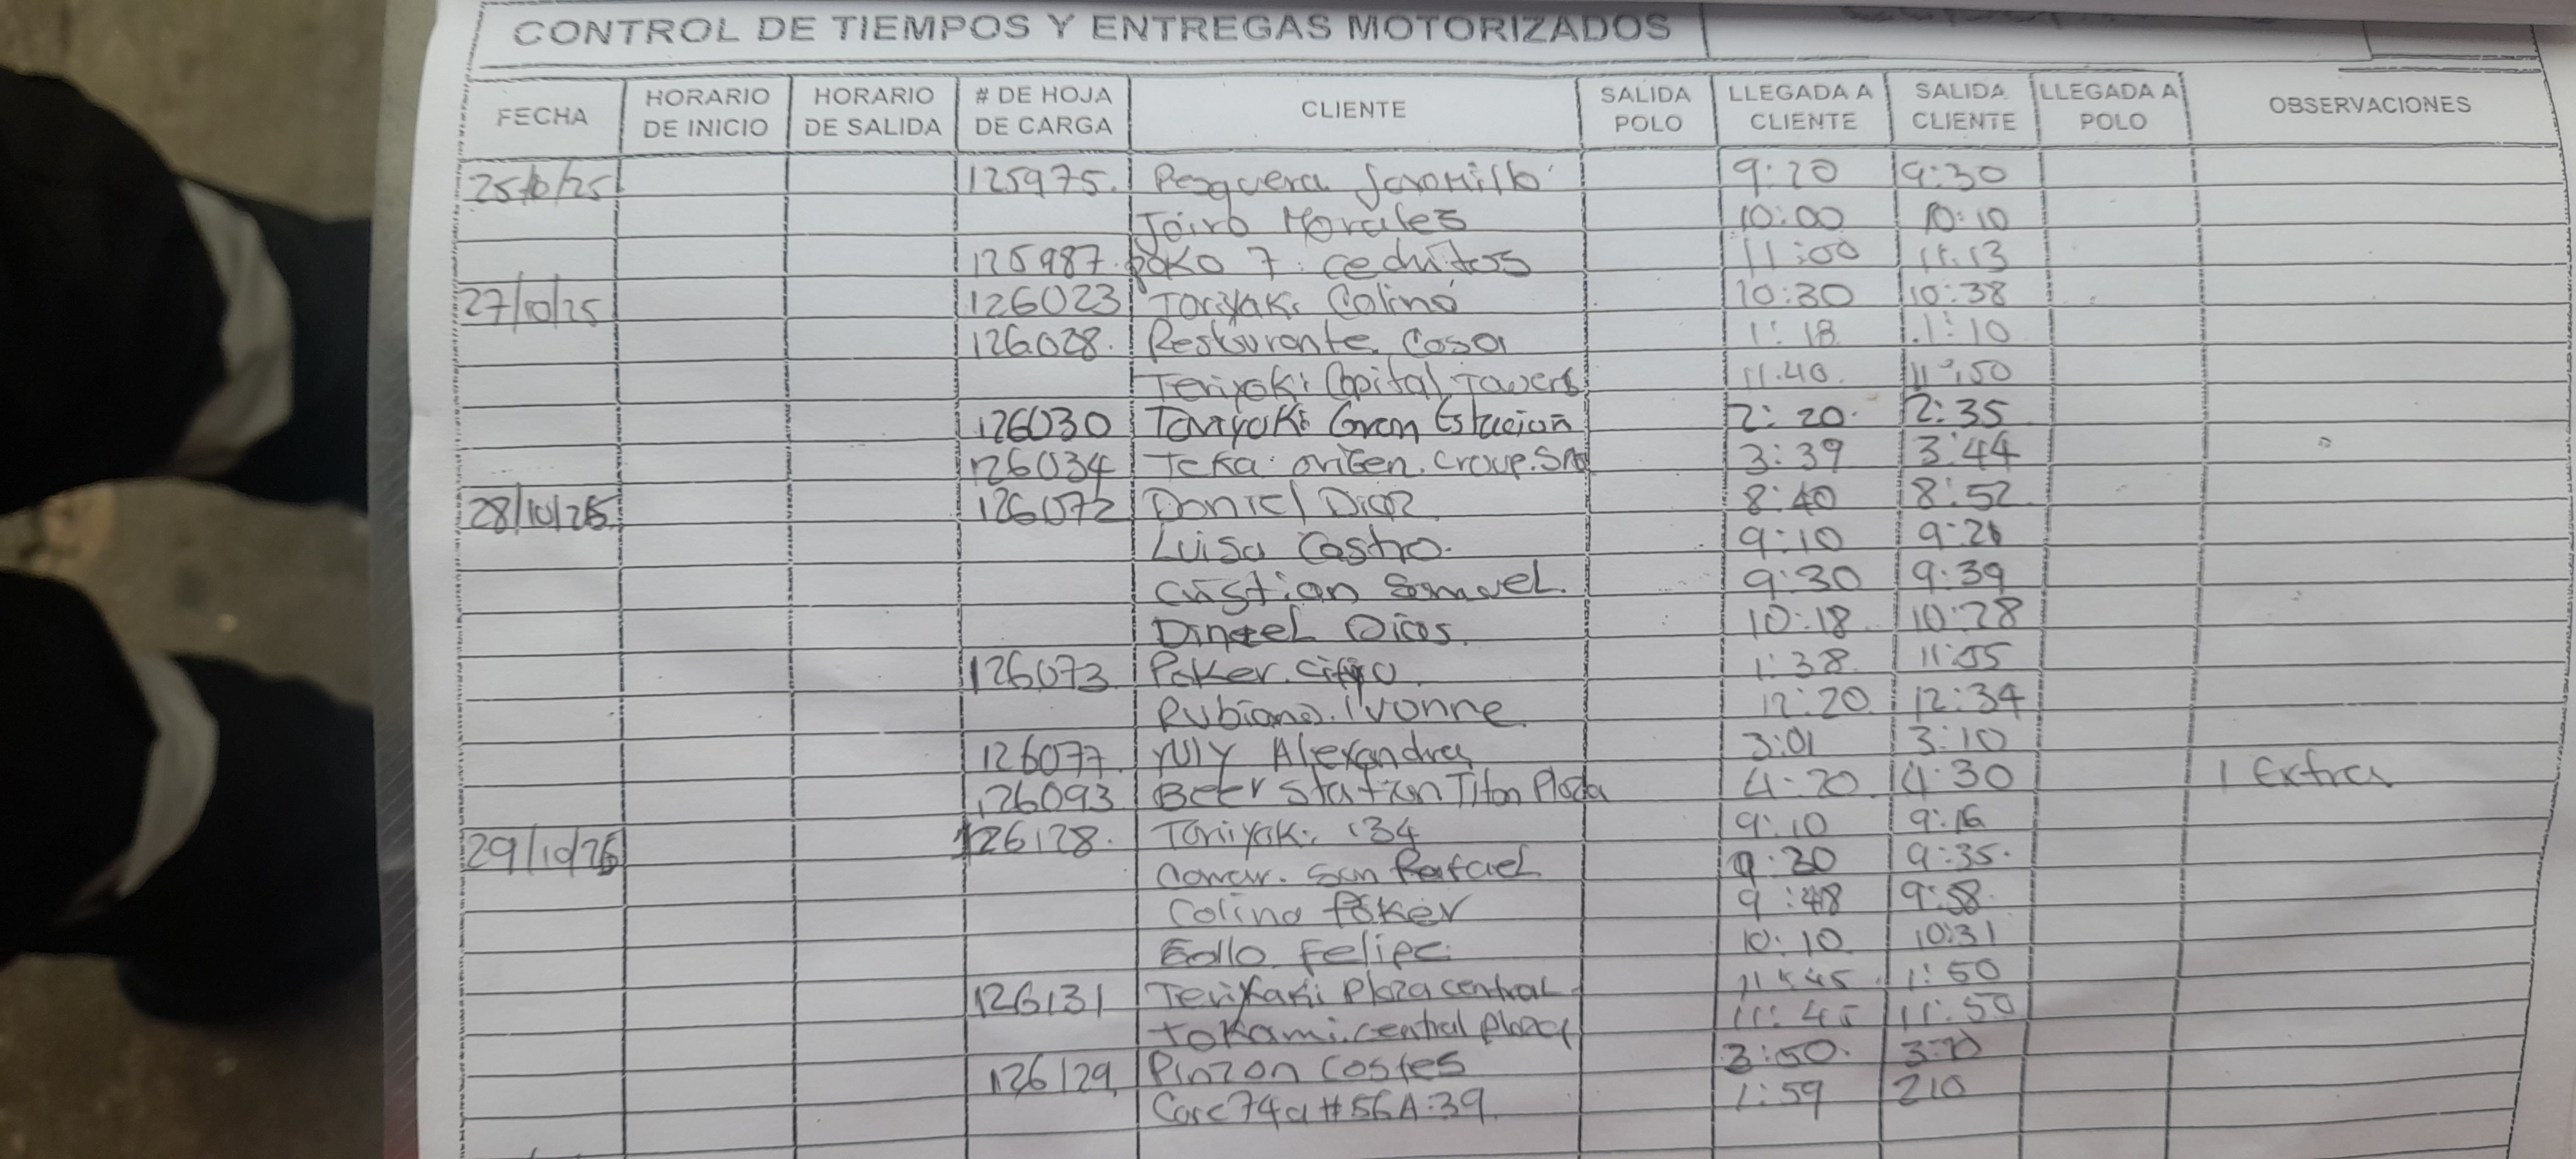 CONTROL DE TIEMPOS Y ENTREGAS MOTORIZADOS
FECHA HORARIO DE INICIO HORARIO DE SALIDA # DE HOJA DE CARGA CLIENTE SALIDA POLO LLEGADA A CLIENTE SALIDA CLIENTE LLEGADA A POLO OBSERVACIONES
25/10/25 125975. Pesquera Jaramillo 9:20 9:30
Jairo Morales 10:00 10:10
125987. poko 7. cedritos 11:00 11:13
27/10/25 126023 Toriyaki Colina 10:30 10:38
126028. Resturante Casa 1:18 1:10
Teriyaki Capital Towers 11:40 11:50
126030 Tariyaki Gram Estacion 2:20 2:35
126034 Teka origen. Group. 3:39 3:44
28/10/25 126072 Daniel Diaz 8:40 8:52
Luisa Castro. 9:10 9:21
Cristian Samuel. 9:30 9:39
Dingel Dias. 10:18 10:28
126073 Poker. 1:38 11:55
Rubiano. Ivonne 12:20 12:34
126077 Yuly Alexandra 3:01 3:10
126093 Beer Station Titan Plaza 4:20 4:30 1 Extra
29/10/25 126128. Toriyaki 134 9:10 9:16
San Rafael 9:30 9:35.
Colina Poker 9:48 9:58
Felipe 10:10 10:31
126131 Teriyaki Plaza central 11:45 1:50
tokami. central plaza 11:45 11:50
126129 Pinzon Costes 3:50 3:10
Care 74a # 56A:39. 1:59 210